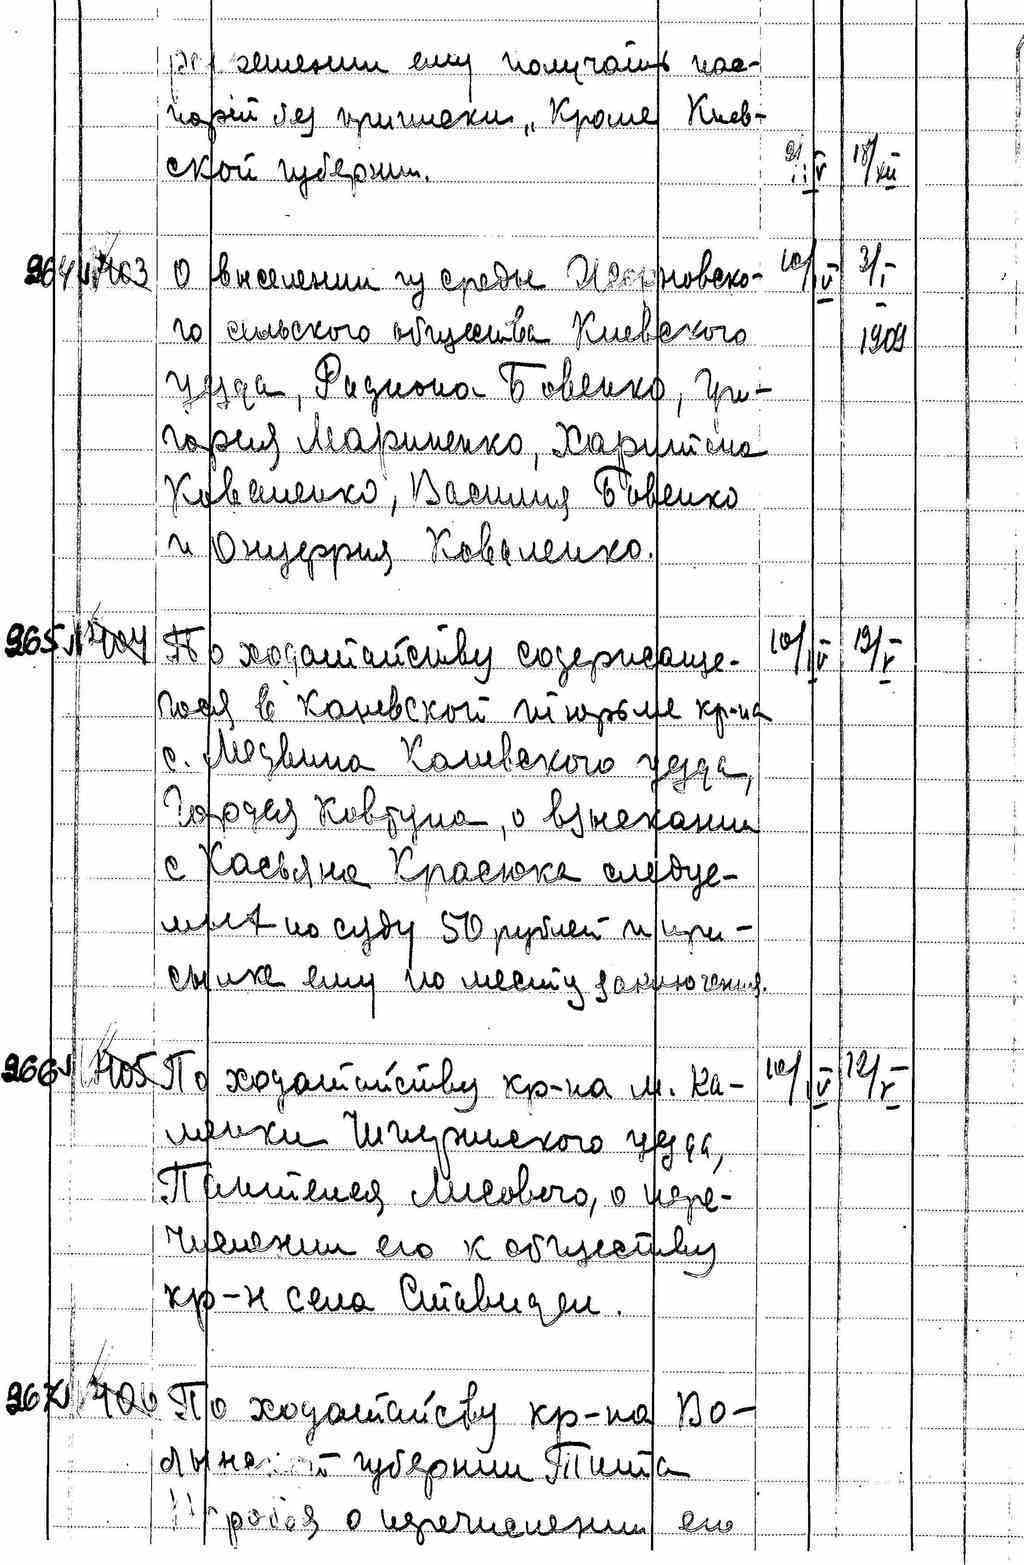 решении ему получать пас-
порт без приписки „Кроме Киев-
ской губернии.
21/IV 18/XII
264 403 О выселении из среды новско- 10/IV 3/I
го сельского общества Киевского 1909
уезда, Радиона Бовенко, Гри-
гория Мариненко, Харитона
Коваленко, Василия Бовенко
и Онуфрия Коваленко.
265 404 По ходатайству содержаще- 10/IV 19/V
гося в Каневской тюрьме кр-на
с. Медвина Каневского уезда,
Гордея Ковтуна, о взыскании
с Касьяна Красюка следуе-
мых по суду 50 рублей и при-
сылке ему по месту заключения.
266 405 По ходатайству кр-на м. Ка- 10/IV 12/V
менки Чигиринского уезда,
Пантелея Лисового, о пере-
числении его к обществу
кр-н села Ставидел.
267 406 По ходатайству кр-на Во-
лынской губернии Тита
о перечислении его